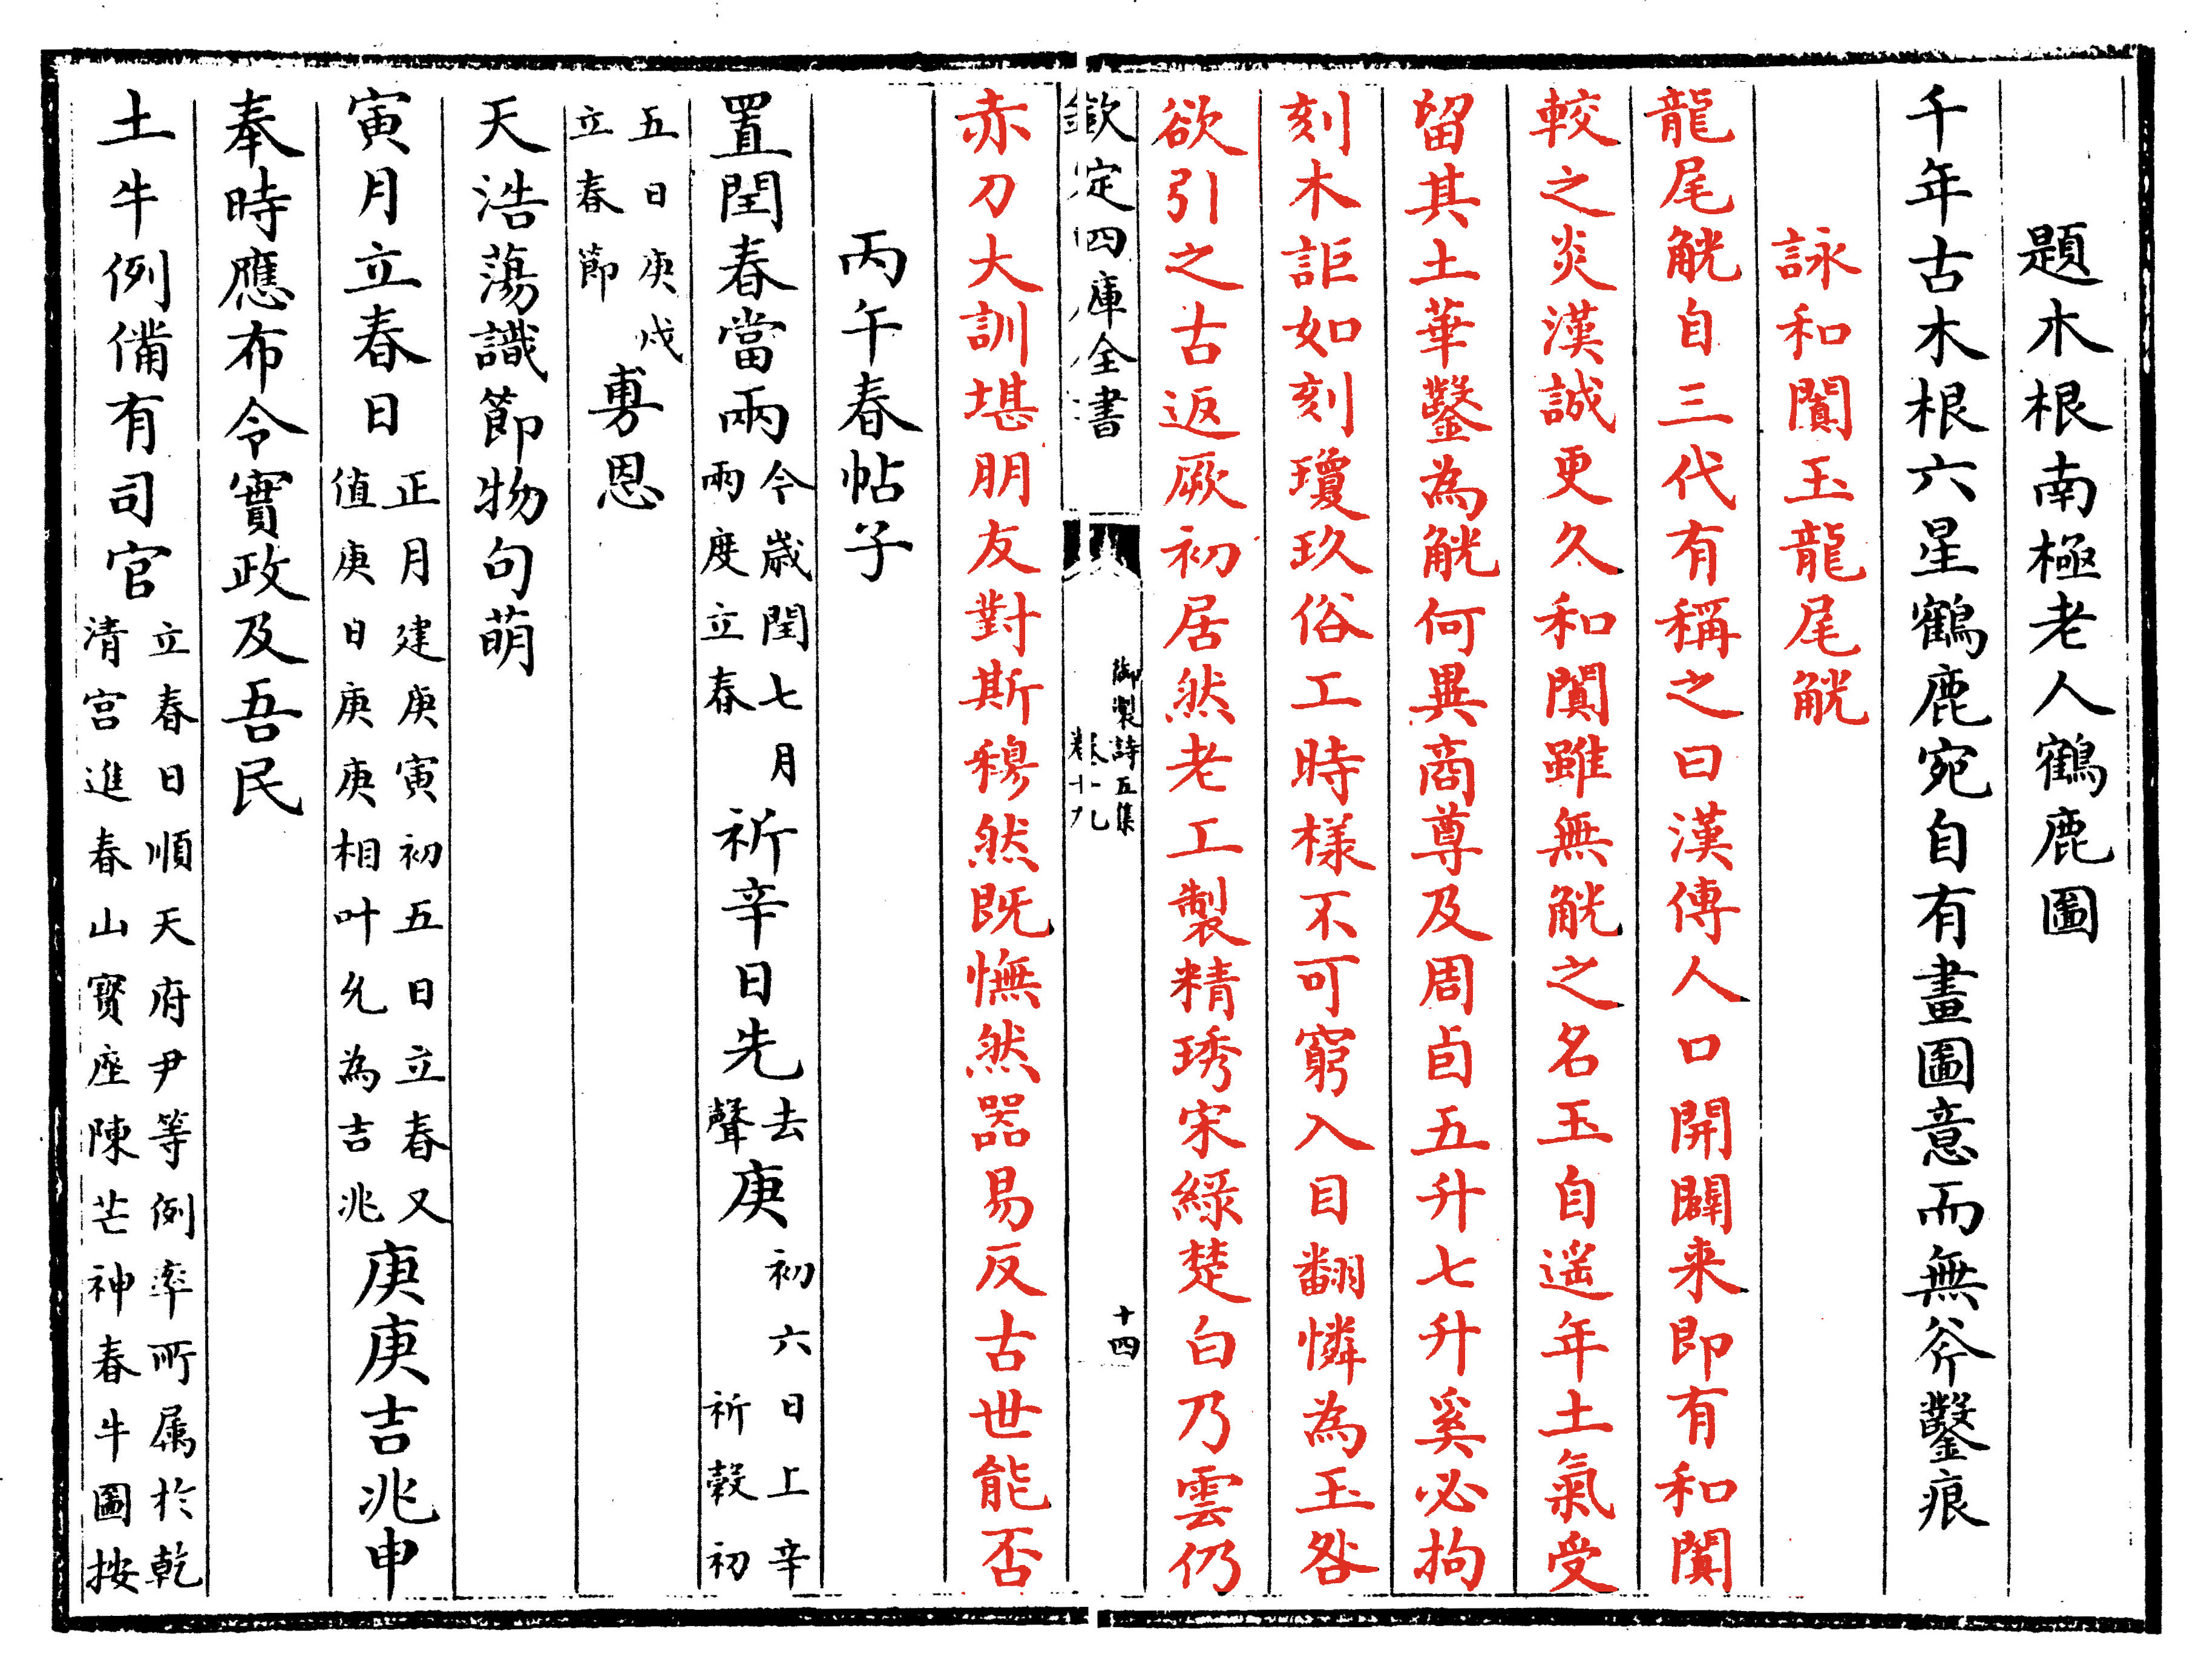 題木根南極老人鶴鹿圖
千年古木根六星鶴鹿宛自有畫圖意而無斧鑿痕
詠和闐玉龍尾觥
龍尾觥自三代有稱之曰漢傳人口開闢来即有和闐
較之炎漢誠更久和闐雖無觥之名玉自遥年土氣受
留其土華鑿為觥何異商尊及周卣五升七升奚必拘
刻木詎如刻瓊玖俗工時樣不可窮入目翻憐為玉咎
欲引之古返厥初居然老工製精琇宋綠楚白乃雲仍
欽定四庫全書
御製詩五集
卷十九
十四
赤刀大訓堪朋友對斯穆然既憮然器易反古世能否
丙午春帖子
置閏春當兩今歳閏七月兩度立春祈辛日先去聲庚初六日上辛祈榖初
五日庚戌立春節旉恩
天浩蕩識節物句萌
寅月立春日正月建庚寅初五日立春又值庚日庚庚相叶允為吉兆庚庚吉兆申
奉時應布令實政及吾民
土牛例備有司官立春日順天府尹等例率所属於乾清宫進春山寳座陳芒神春牛圖按